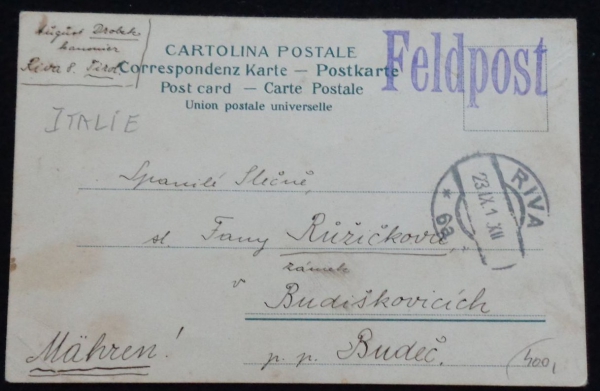 August Drobek
kanonier
Riva s. Tirol
CARTOLINA POSTALE
Correspondenz Karte — Postkarte
Post card — Carte Postale
Union postale universelle
Feldpost
ITALIE
RIVA
23.IX.1 XII
* 6a *
Spanilé Slečně,
sl. Fany Růžičkova,
zámek
v Budiškovicích
Mähren!
p. p. Budeč.
400,